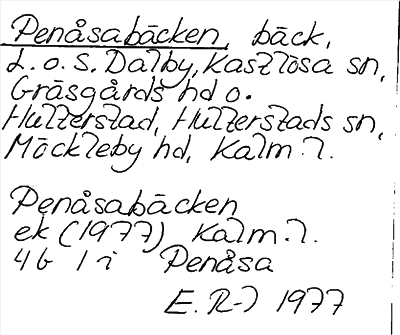 Penåsabäcken, bäck,
L. o. S. Dalby, Kastlösa sn,
Gräsgårds hd o.
Hulterstad, Hulterstads sn,
Möckleby hd, Kalm. l.
Penåsabäcken
ek (1977) Kalm. l.
4b 1i Penåsa
E. R-) 1977